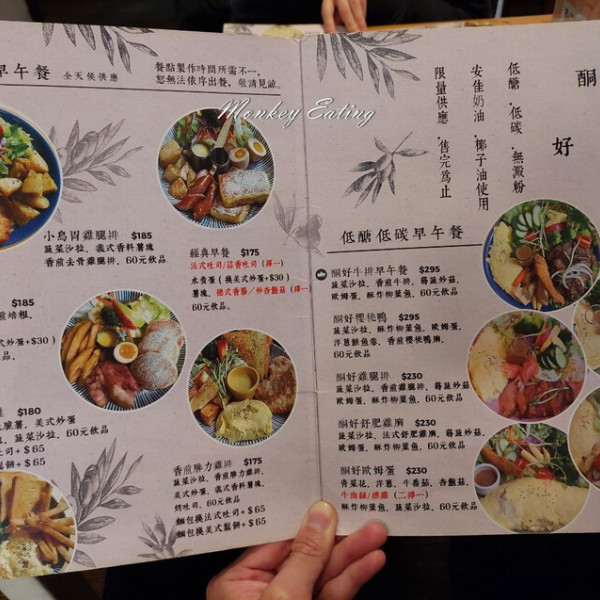 早午餐 全天候供應
餐點製作時間所需不一，
恕無法依序出餐，敬請見諒。
Monkey Eating
小鳥胃雞腿排 $185
蔬菜沙拉，義式香料薯塊
香煎去骨雞腿排，60元飲品
經典早餐 $175
法式吐司/蒜香吐司（擇一）
水煮蛋（換美式炒蛋+$30）
薯塊，德式香腸／炒杏鮑菇（擇一）
60元飲品。
$185
+$30）
$180
美式炒蛋
蔬菜沙拉，60元飲品
吐司+$65
鬆餅+$65
香煎勝力雞排 $175
蔬菜沙拉，香煎勝力雞排，
美式炒蛋，義式香料薯塊，
烤吐司，60元飲品
麵包換法式吐司+$65
麵包換美式鬆餅+$65
酮
好
低醣．低碳．無澱粉
安佳奶油．椰子油使用
限量供應．售完為止
低醣低碳早午餐
酮好牛排早午餐 $295
蔬菜沙拉，香煎牛排，蒜蔬炒菇，
歐姆蛋，酥炸柳葉魚，60元飲品
酮好櫻桃鴨 $295
蔬菜沙拉，酥炸柳葉魚，歐姆蛋，
洋蔥鮮魚蓉，香煎櫻桃鴨胸，
60元飲品
酮好雞腿排 $230
蔬菜沙拉，香煎雞腿排，蒜蔬炒菇
歐姆蛋，酥炸柳葉魚，60元飲品
酮好舒肥雞胸 $230
蔬菜沙拉，法式舒肥雞胸，蒜蔬炒菇，
歐姆蛋，酥炸柳葉魚，60元飲品
酮好歐姆蛋 $230
青菜花，洋蔥，牛番茄，杏鮑菇，
牛肉絲/燻雞（二擇一）
酥炸柳葉魚，蔬菜沙拉，60元飲品